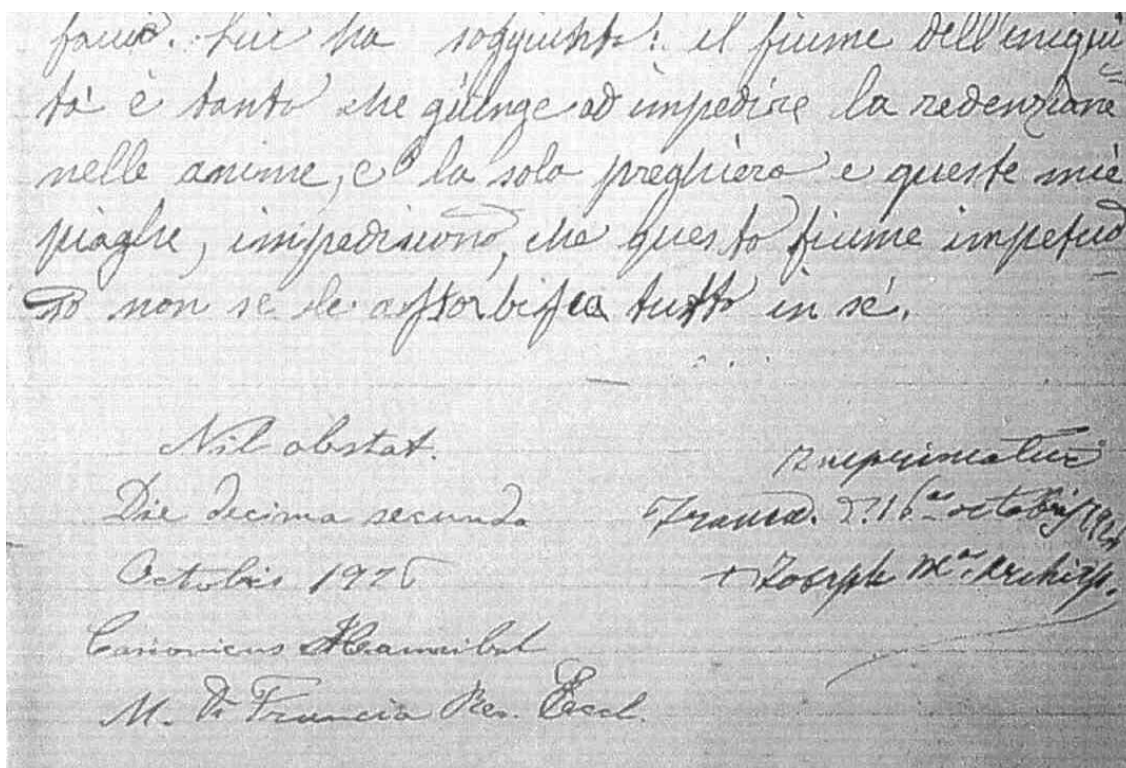 ha soggiunto: il fiume dell'iniqui
tà è tanto che giunge ad impedire la redenzione
nelle anime, e la sola preghiera e queste mie
piaghe, impediscono, che questo fiume impetuo
so non se le assorbisca tutto in sé.
Nil obstat.
Die decima secunda
Octobris 1926
Canonicus Hannibal
M. Di Francia Rev. Eccl.
Imprimatur
Octobris
+ Joseph M.as Archiep.